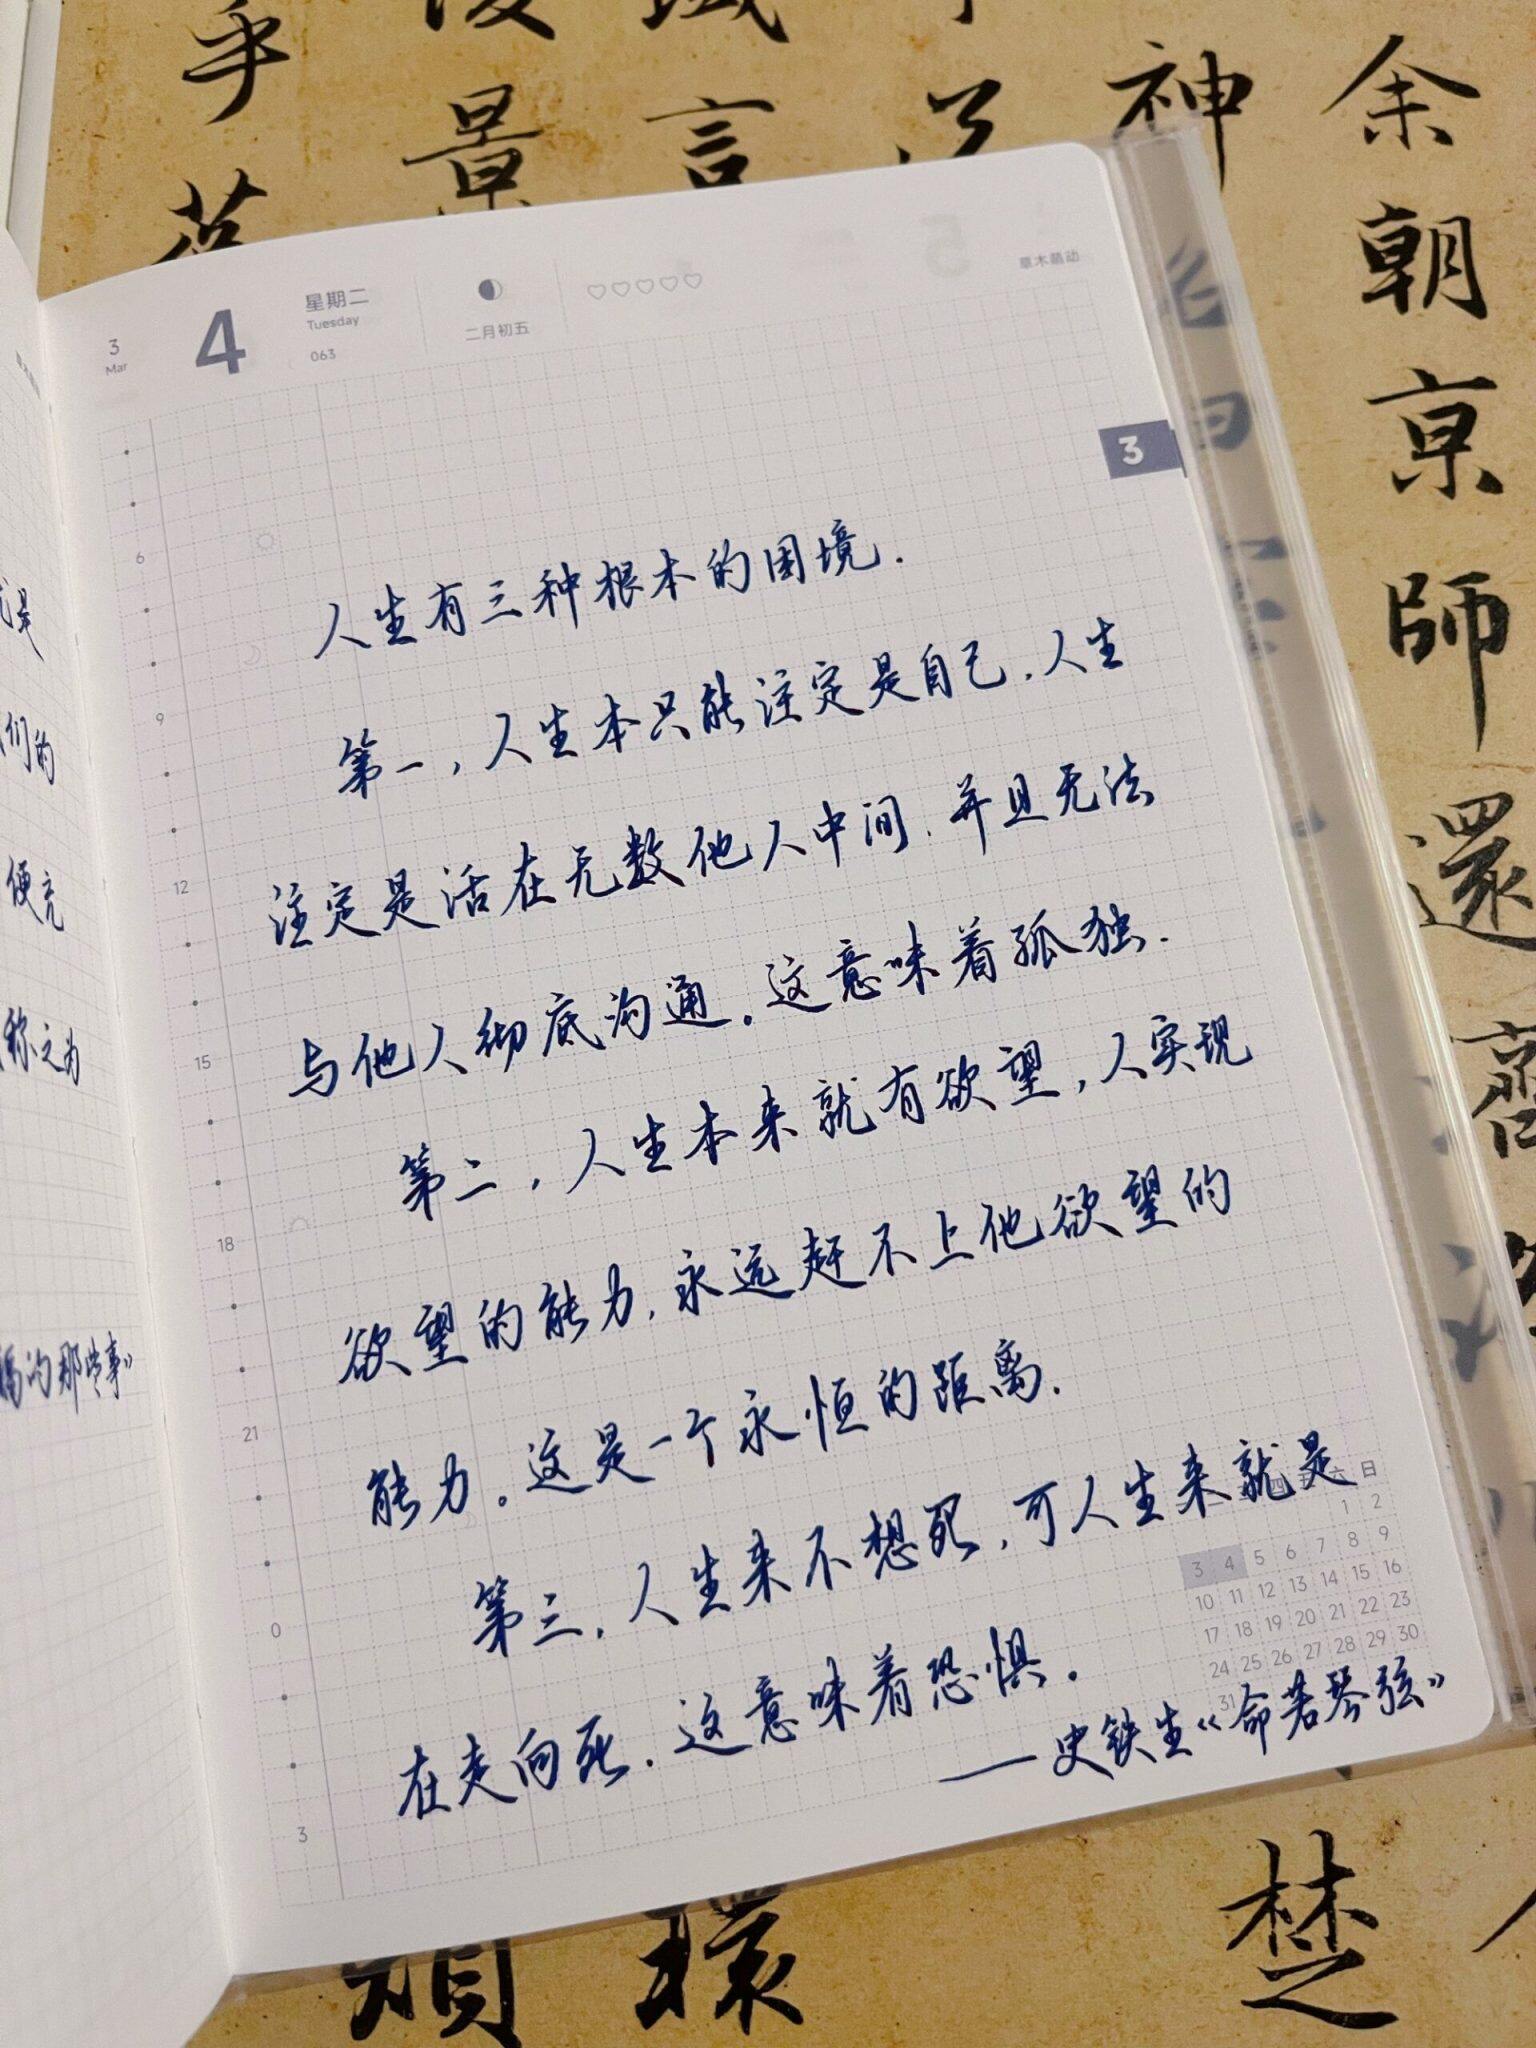 乎
景
言
神
余
朝
京
師
還
齊
楚
環
3
Mar
4
星期二
Tuesday
063
二月初五
草木萌动
3
人生有三种根本的困境.
第一,人生本只能注定是自己.人生
注定是活在无数他人中间.并且无法
与他人彻底沟通。这意味着孤独.
第二,人生本来就有欲望,人实现
欲望的能力,永远赶不上他欲望的
能力。这是一个永恒的距离.
第三,人生来不想死,可人生来就是
在走向死.这意味着恐惧.
——史铁生《命若琴弦》
6
9
12
15
18
21
0
3
四 五 六 日
1 2
3 4 5 6 7 8 9
10 11 12 13 14 15 16
17 18 19 20 21 22 23
24 25 26 27 28 29 30
31
们的
便充
称之为
的那些事》